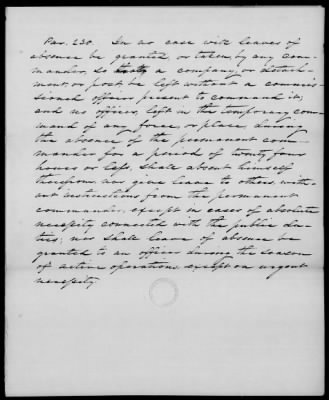 Par. 230. In no case will leaves of
absence be granted, or taken, by any com-
mander, so that a company, or detach-
ment, or post, be left without a commis-
sioned officer present to command it;
and no officer, left in the temporary com-
mand of any force, or place, during
the absence of the permanent com-
mander for a period of twenty four
hours or less, shall absent himself
therefrom, nor give leave to others, with-
out instructions from the permanent
commander, except in cases of absolute
necessity connected with the public du-
ties; nor shall leave of absence be
granted to an officer during the season
of active operations, except on urgent
necessity.